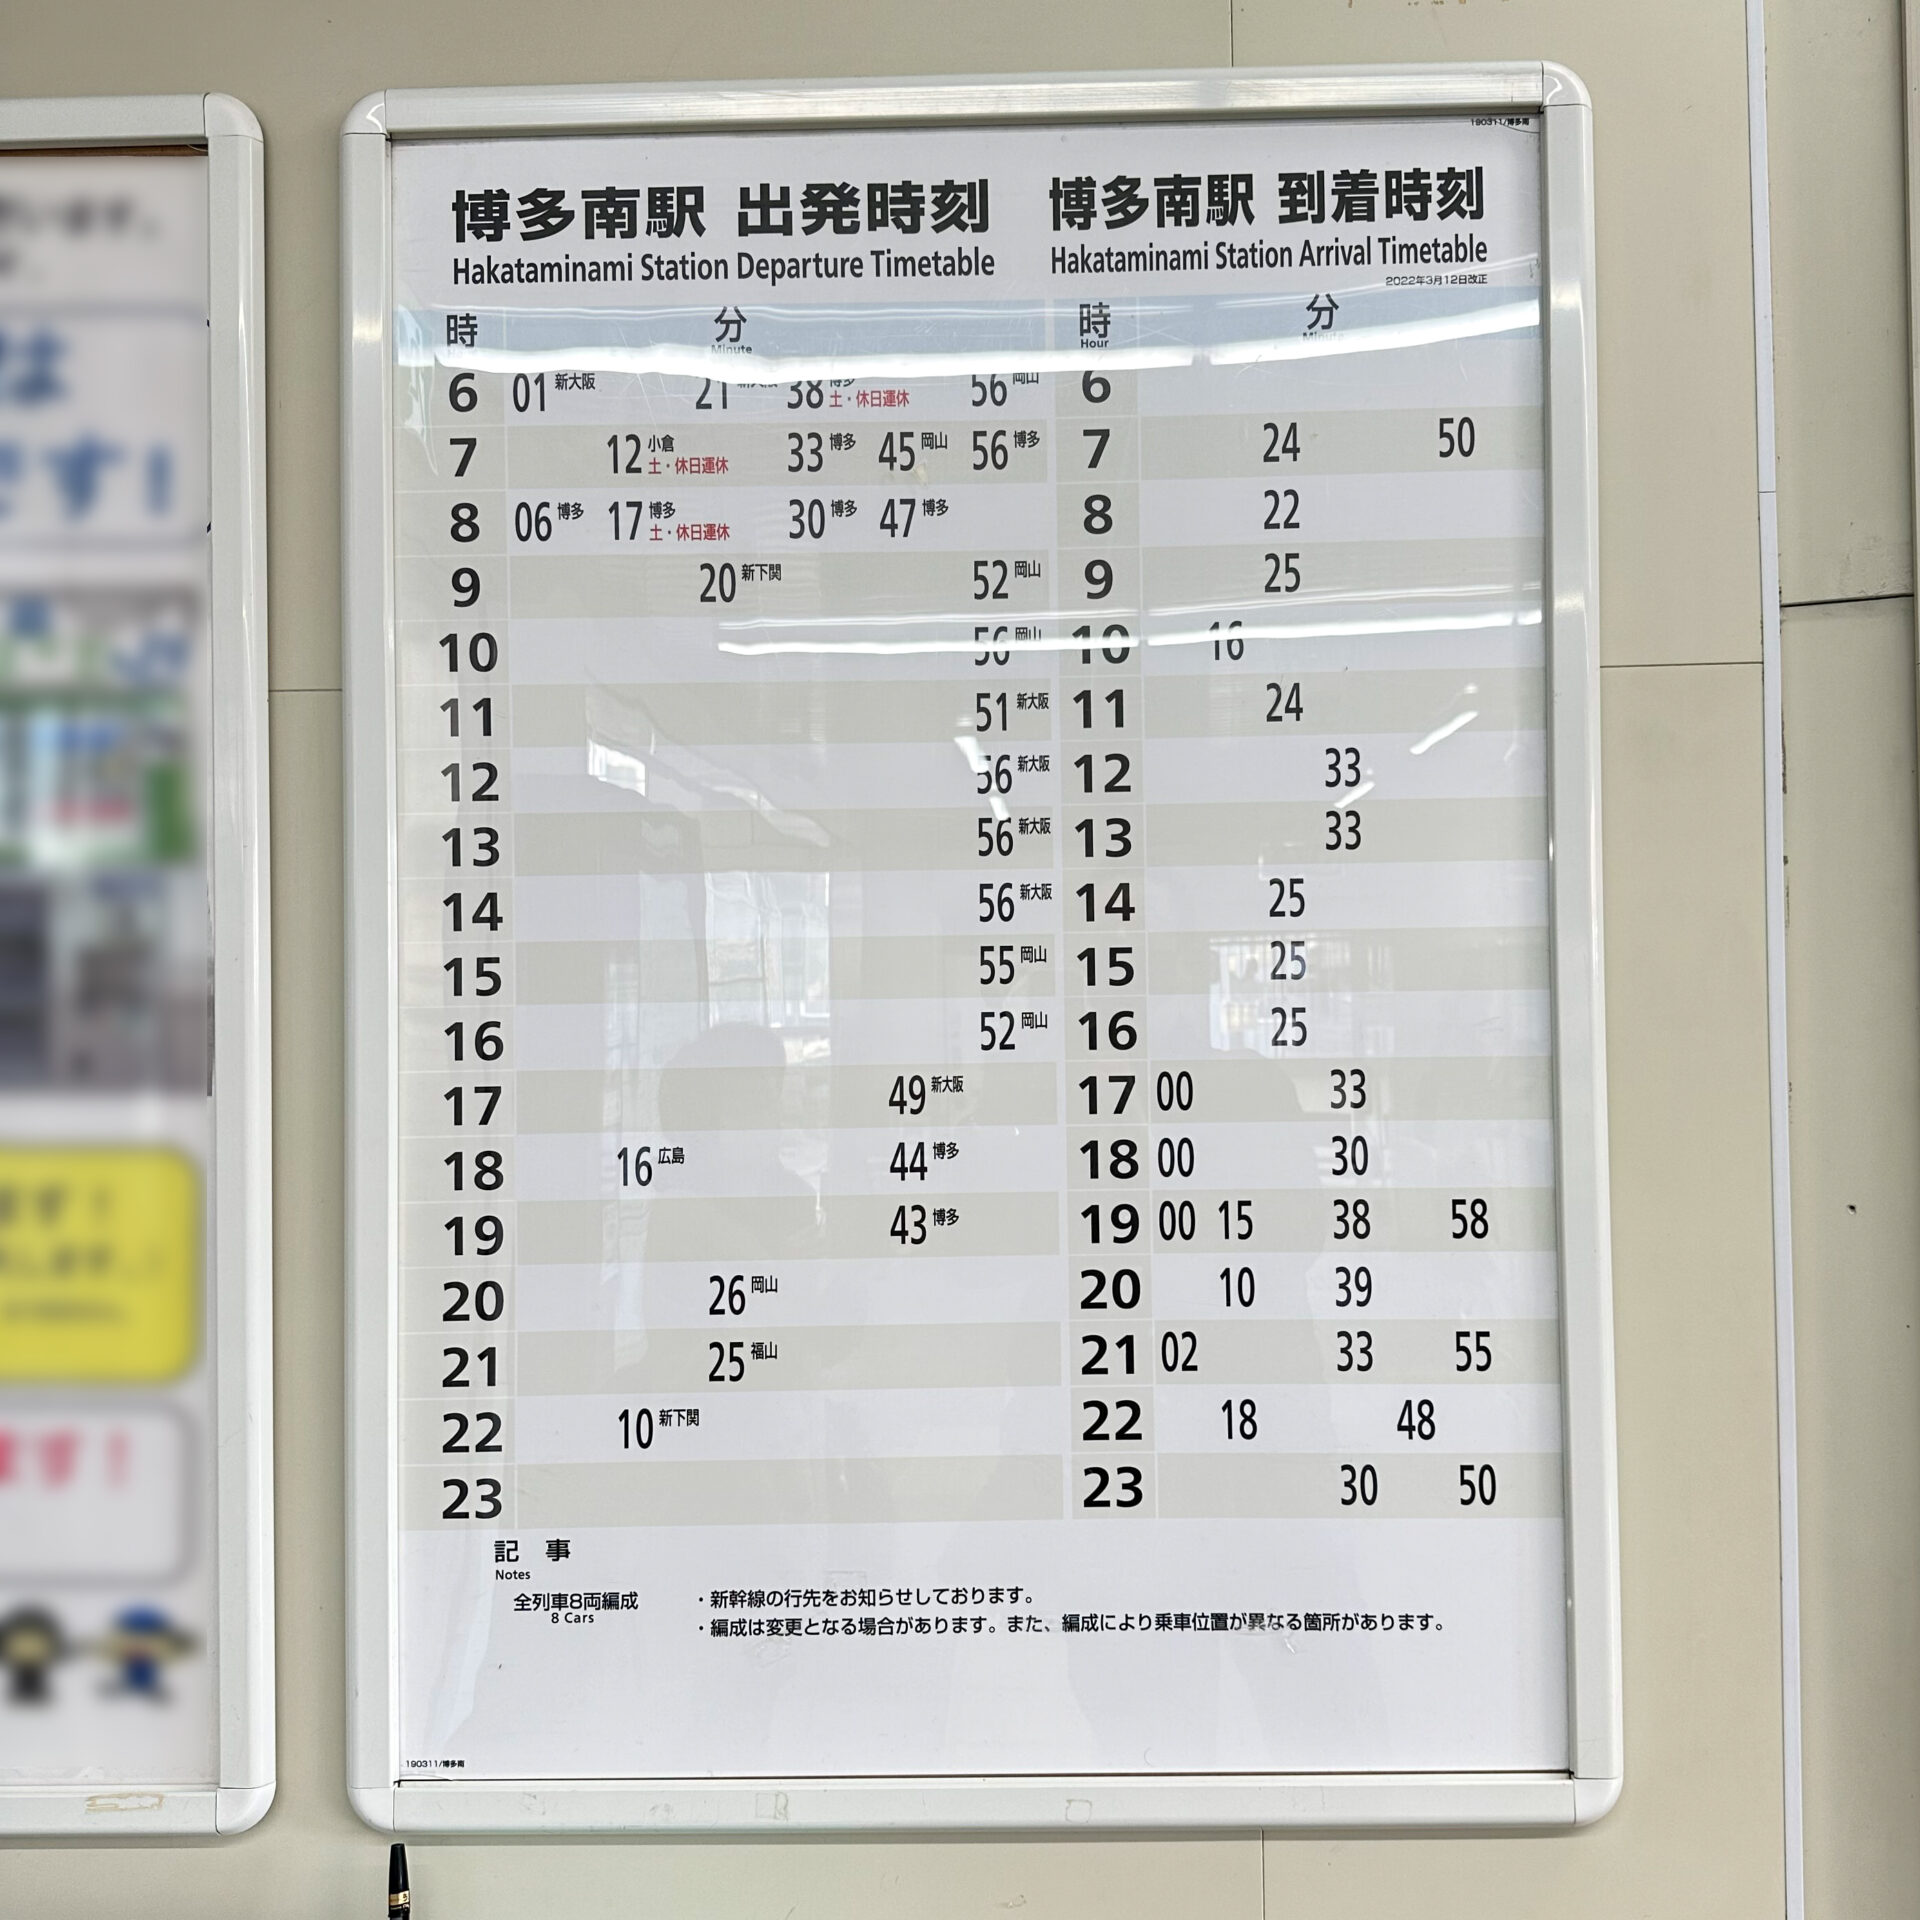 190311/博多南
博多南駅 出発時刻
Hakataminami Station Departure Timetable
博多南駅 到着時刻
Hakataminami Station Arrival Timetable
2022年3月12日改正
時 分
Minute
6 01新大阪 21新大阪 38博多 土・休日運休 56岡山
7 12小倉 土・休日運休 33博多 45岡山 56博多
8 06博多 17博多 土・休日運休 30博多 47博多
9 20新下関 52岡山
10 56岡山
11 51新大阪
12 56新大阪
13 56新大阪
14 56新大阪
15 55岡山
16 52岡山
17 49新大阪
18 16広島 44博多
19 43博多
20 26岡山
21 25福山
22 10新下関
23
時 分
Hour Minute
6
7 24 50
8 22
9 25
10 16
11 24
12 33
13 33
14 25
15 25
16 25
17 00 33
18 00 30
19 00 15 38 58
20 10 39
21 02 33 55
22 18 48
23 30 50
記 事
Notes
全列車8両編成
8 Cars
・新幹線の行先をお知らせしております。
・編成は変更となる場合があります。また、編成により乗車位置が異なる箇所があります。
190311/博多南